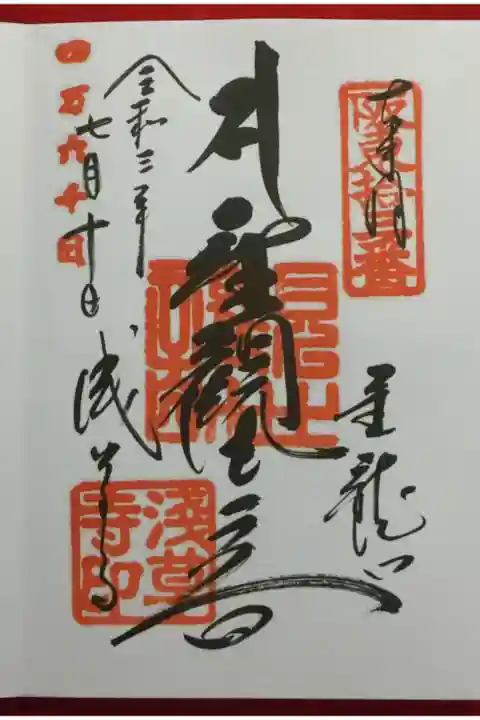 阪東拾三番
金龍山
聖観世音
令和三年
七月十日
四万六千日
浅草寺
淺草
寺印